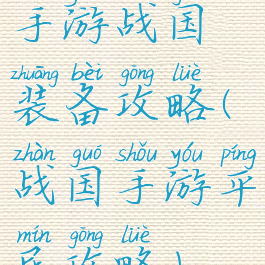 手游战国
zhuāng bèi gōng lüè
装备攻略(
zhàn guó shǒu yóu píng
战国手游平
mín gōng lüè
民攻略)